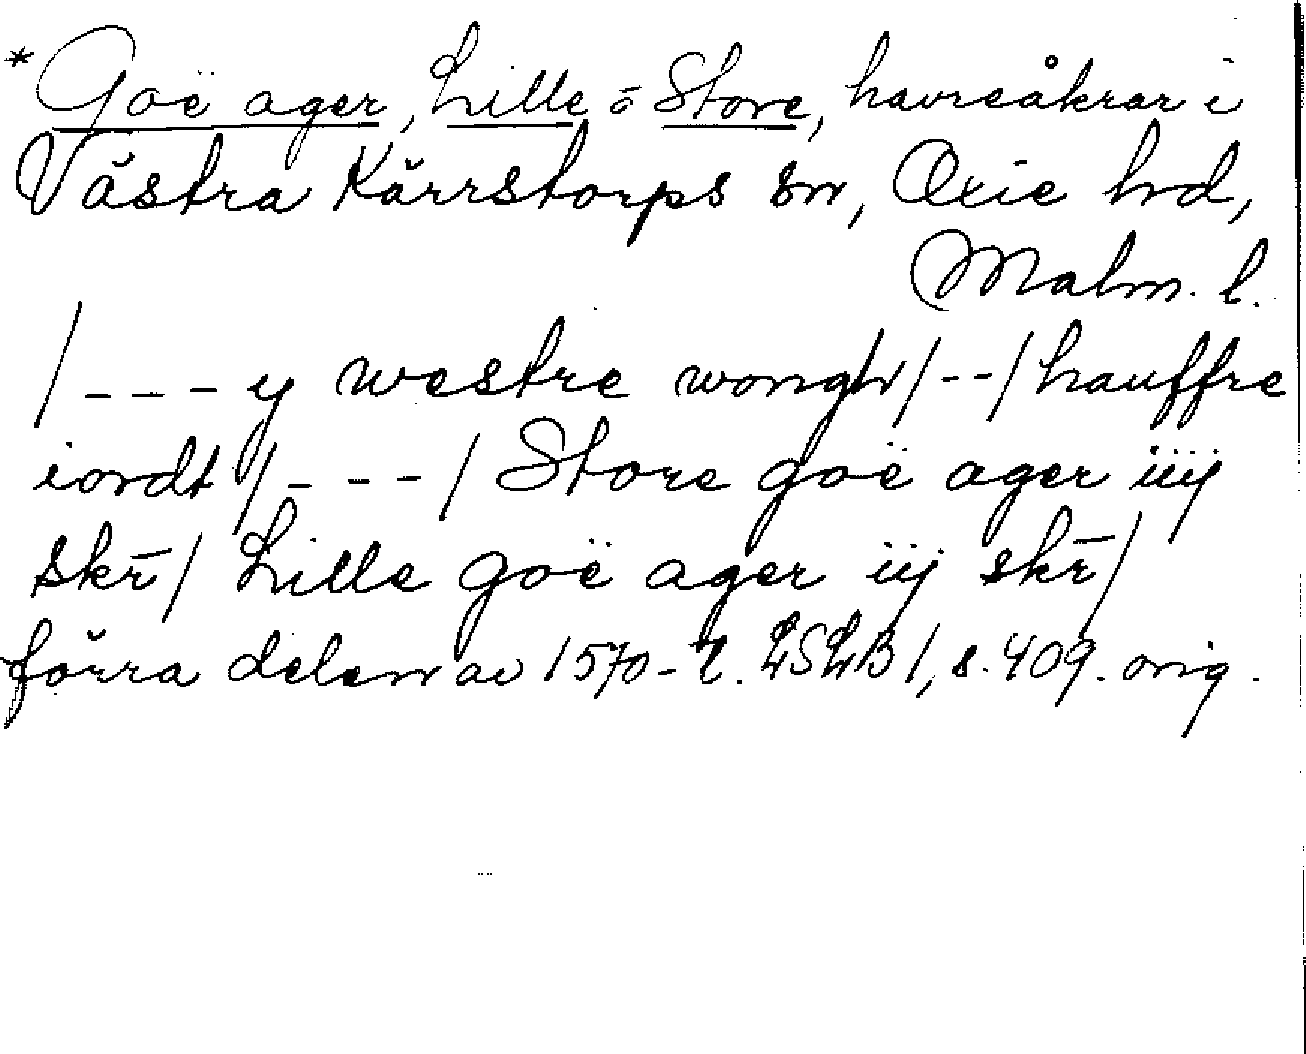 *Goë ager, Lille o Store, havreåkrar i
Västra Kärrstorps sn, Oxie hd,
Malm. l.
/--- y westre wongh/--/hauffre
iordt/---/Store goë ager iiij
skr̄/ Lille goë ager iij skr̄/
förra delen av 1570-t. LSLB 1, s. 409. orig.